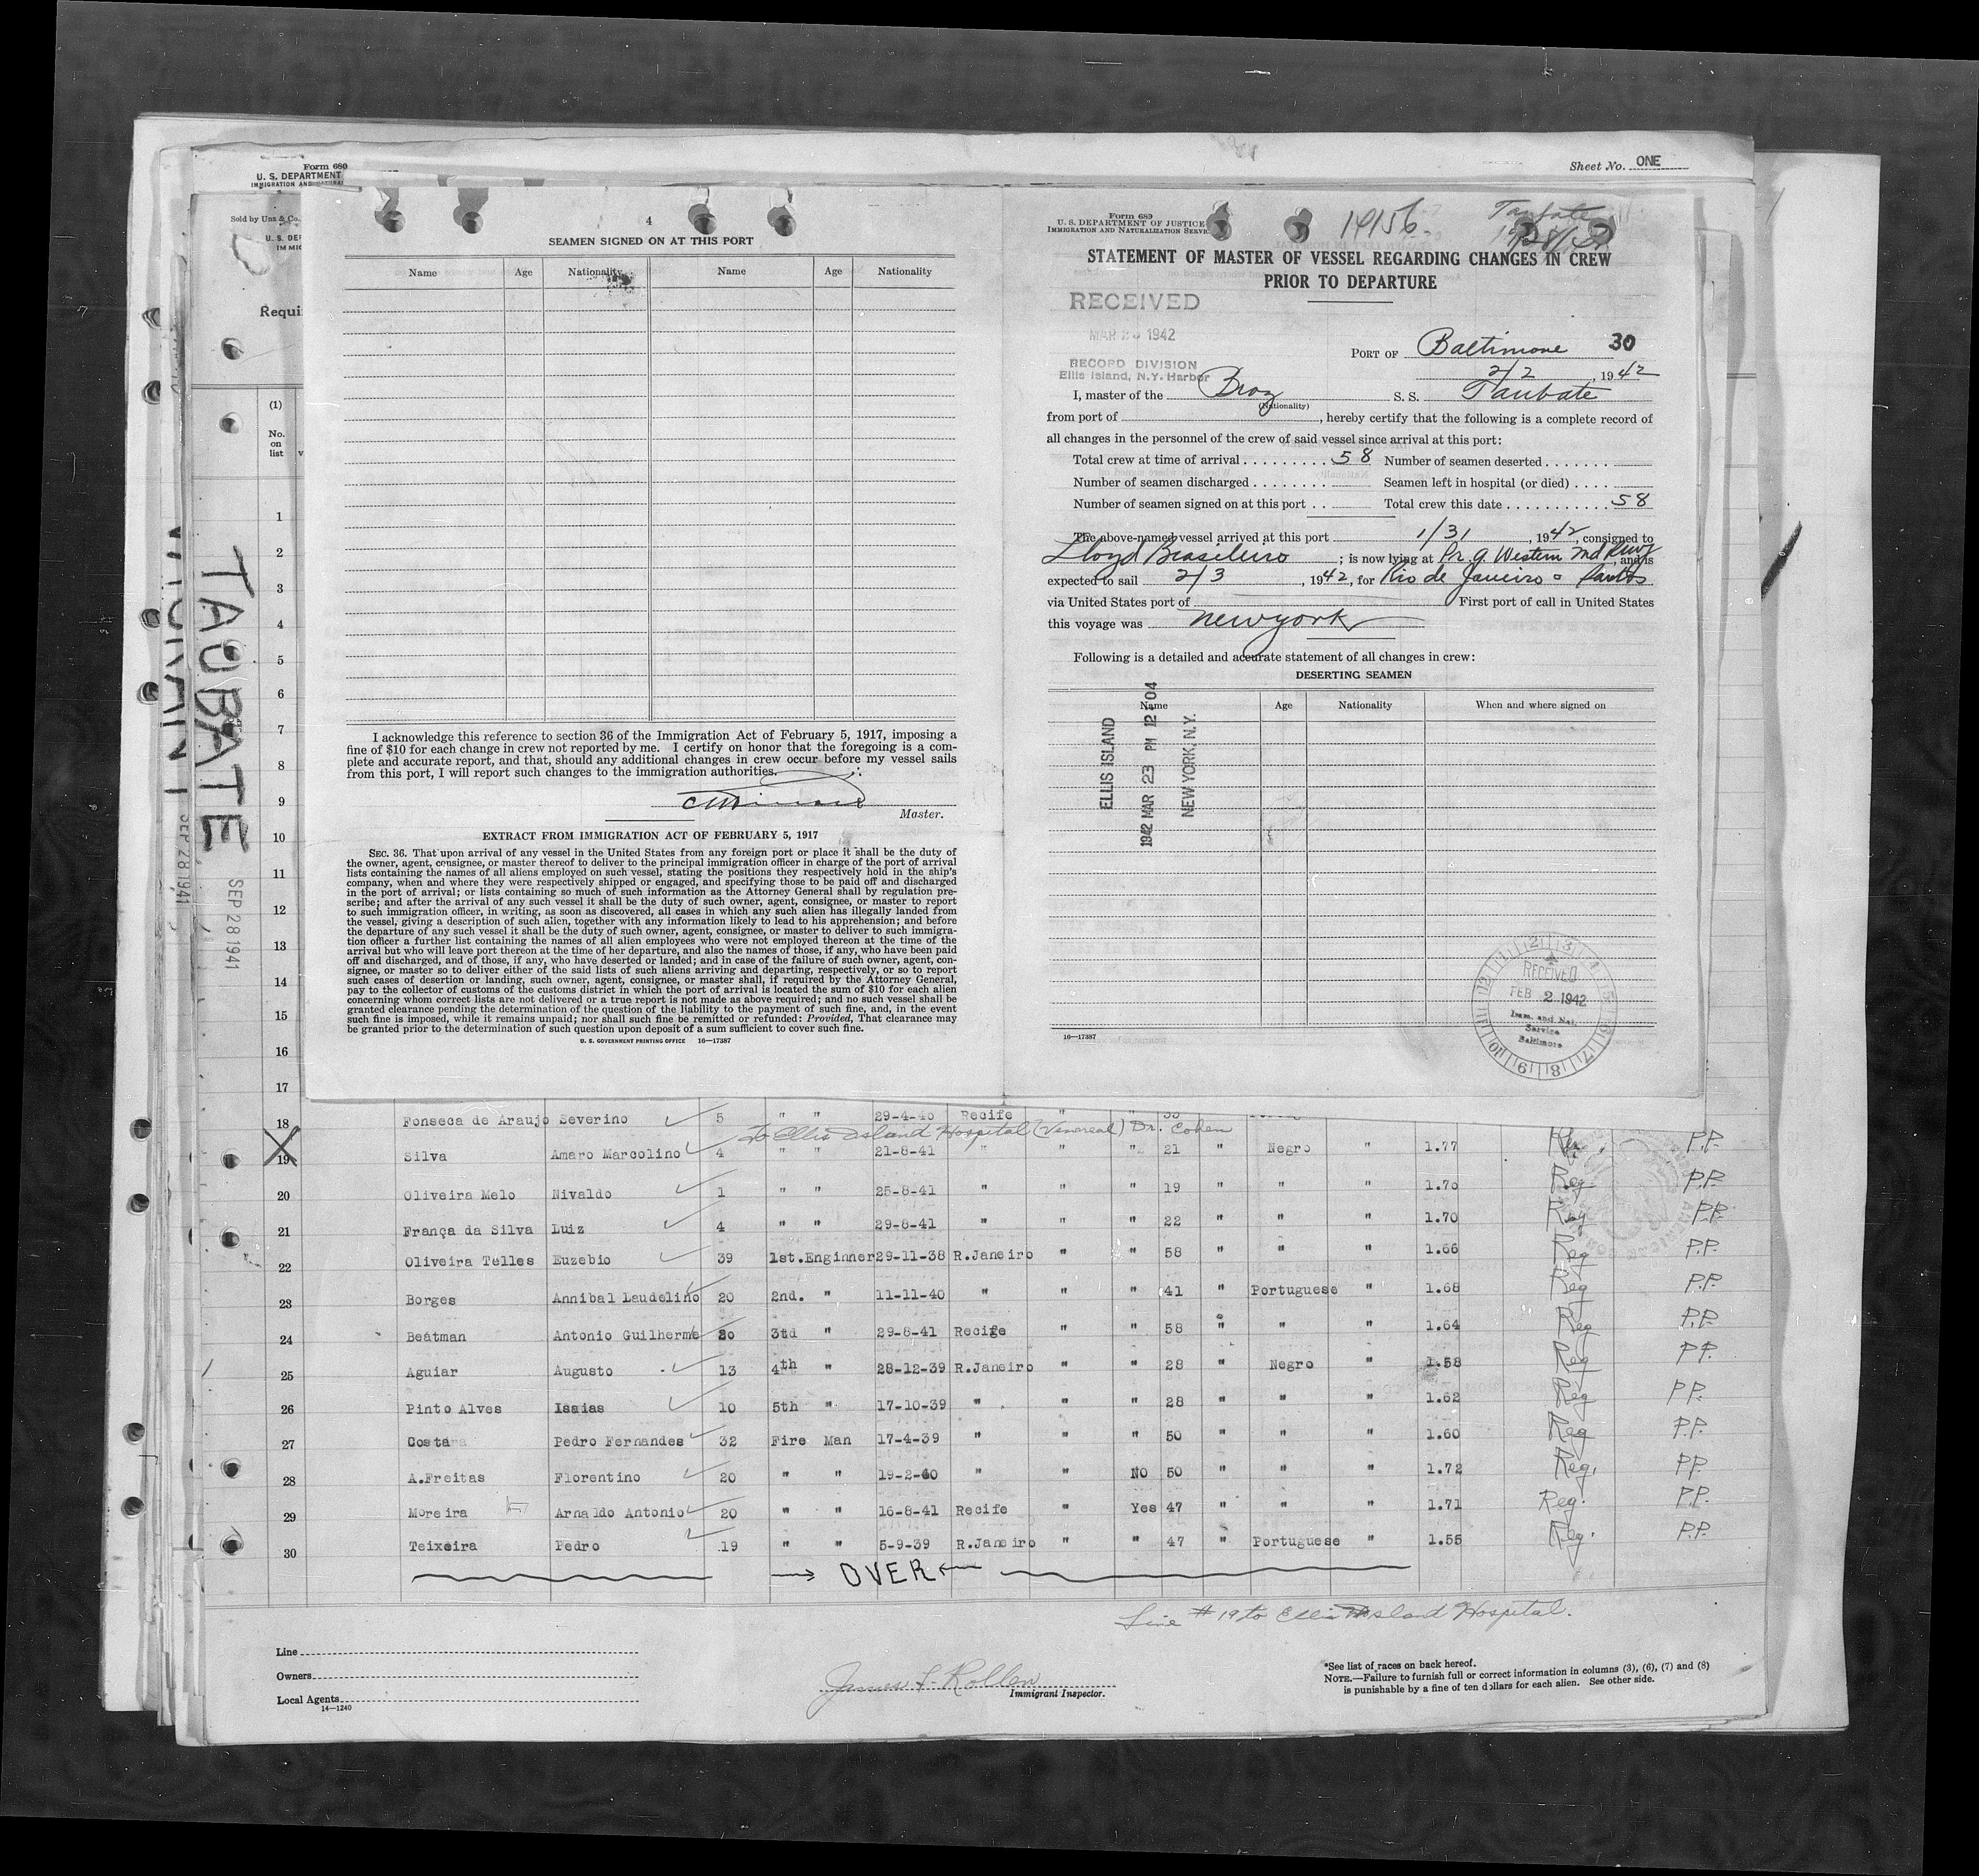 Form 680
U. S. DEPARTMENT
Sheet No. ONE
Sold by Unz & Co.
Requi
(1)
No.
on
list
TAUBATE
SEP 28 1941
SEP 28 1941
4
SEAMEN SIGNED ON AT THIS PORT
Name Age Nationality Name Age Nationality
I acknowledge this reference to section 36 of the Immigration Act of February 5, 1917, imposing a
fine of $10 for each change in crew not reported by me. I certify on honor that the foregoing is a com-
plete and accurate report, and that, should any additional changes in crew occur before my vessel sails
from this port, I will report such changes to the immigration authorities.
Master.
EXTRACT FROM IMMIGRATION ACT OF FEBRUARY 5, 1917
SEC. 36. That upon arrival of any vessel in the United States from any foreign port or place it shall be the duty of
the owner, agent, consignee, or master thereof to deliver to the principal immigration officer in charge of the port of arrival
lists containing the names of all aliens employed on such vessel, stating the positions they respectively hold in the ship's
company, when and where they were respectively shipped or engaged, and specifying those to be paid off and discharged
in the port of arrival; or lists containing so much of such information as the Attorney General shall by regulation pre-
scribe; and after the arrival of any such vessel it shall be the duty of such owner, agent, consignee, or master to report
to such immigration officer, in writing, as soon as discovered, all cases in which any such alien has illegally landed from
the vessel, giving a description of such alien, together with any information likely to lead to his apprehension; and before
the departure of any such vessel it shall be the duty of such owner, agent, consignee, or master to deliver to such immigra-
tion officer a further list containing the names of all alien employees who were not employed thereon at the time of the
arrival but who will leave port thereon at the time of her departure, and also the names of those, if any, who have been paid
off and discharged, and of those, if any, who have deserted or landed; and in case of the failure of such owner, agent, con-
signee, or master so to deliver either of the said lists of such aliens arriving and departing, respectively, or so to report
such cases of desertion or landing, such owner, agent, consignee, or master shall, if required by the Attorney General,
pay to the collector of customs of the customs district in which the port of arrival is located the sum of $10 for each alien
concerning whom correct lists are not delivered or a true report is not made as above required; and no such vessel shall be
granted clearance pending the determination of the question of the liability to the payment of such fine, and, in the event
such fine is imposed, while it remains unpaid; nor shall such fine be remitted or refunded: Provided, That clearance may
be granted prior to the determination of such question upon deposit of a sum sufficient to cover such fine.
U. S. GOVERNMENT PRINTING OFFICE 16—17387
Form 689
U. S. DEPARTMENT OF JUSTICE
IMMIGRATION AND NATURALIZATION SERVI
19156. Taubate
STATEMENT OF MASTER OF VESSEL REGARDING CHANGES IN CREW
PRIOR TO DEPARTURE
RECEIVED
MAR 1942
RECORD DIVISION
Ellis Island, N.Y. Harbor
PORT OF Baltimore 30
2/2, 1942
I, master of the Braz S. S. Taubate
(Nationality)
from port of , hereby certify that the following is a complete record of
all changes in the personnel of the crew of said vessel since arrival at this port:
Total crew at time of arrival 58 Number of seamen deserted
Number of seamen discharged Seamen left in hospital (or died)
Number of seamen signed on at this port Total crew this date 58
The above-named vessel arrived at this port 1/31, 1942, consigned to
Lloyd Brasileiro; is now lying at Pr. 9 Western Md Rwy, and is
expected to sail 2/3, 1942, for Rio de Janeiro - Santos
via United States port of First port of call in United States
this voyage was New york
Following is a detailed and accurate statement of all changes in crew:
DESERTING SEAMEN
Name Age Nationality When and where signed on
ELLIS ISLAND
1942 MAR 23 PM 12 04
NEW YORK, N.Y.
RECEIVED
FEB 2 1942
Imm. and Nat.
Service
Baltimore
16—17387
1
2
3
4
5
6
7
8
9
10
11
12
13
14
15
16
17
18 Fonseca de Araujo Severino 5 " " 29-4-40 Recife "
To Ellis Island Hospital (Venereal) Dr. Cohen
19 Silva Amaro Marcolino 4 " " 21-8-41 " " " 21 " Negro " 1.77 Reg. P.P.
20 Oliveira Melo Nivaldo 1 " " 25-8-41 " " " 19 " " " 1.70 Reg P.P.
21 França da Silva Luiz 4 " " 29-8-41 " " " 22 " " " 1.70 Reg P.P.
22 Oliveira Telles Euzebio 39 1st.Enginner 29-11-38 R.Janeiro " " 58 " " " 1.66 Reg P.P.
23 Borges Annibal Laudelino 20 2nd. " 11-11-40 " " " 41 " Portuguese " 1.68 Reg P.P.
24 Beátman Antonio Guilherme 20 3td " 29-8-41 Recife " " 58 " " " 1.64 Reg P.P.
25 Aguiar Augusto 13 4th " 28-12-39 R.Janeiro " " 28 " Negro " 1.58 Reg P.P.
26 Pinto Alves Isaias 10 5th " 17-10-39 " " " 28 " " " 1.62 Reg P.P.
27 Costa Pedro Fernandes 32 Fire Man 17-4-39 " " " 50 " " " 1.60 Reg P.P.
28 A.Freitas Florentino 20 " " 19-2-40 " " NO 50 " " " 1.72 Reg. P.P.
29 Moreira Arnaldo Antonio 20 " " 16-8-41 Recife " Yes 47 " " " 1.71 Reg. P.P.
30 Teixeira Pedro 19 " " 5-9-39 R.Janeiro " " 47 " Portuguese " 1.55 Reg. P.P.
→ OVER ←
Line #19 to Ellis Island Hospital.
Line
Owners
Local Agents
14—1240
James F. Rollen
Immigrant Inspector.
*See list of races on back hereof.
NOTE.—Failure to furnish full or correct information in columns (3), (6), (7) and (8)
is punishable by a fine of ten dollars for each alien. See other side.